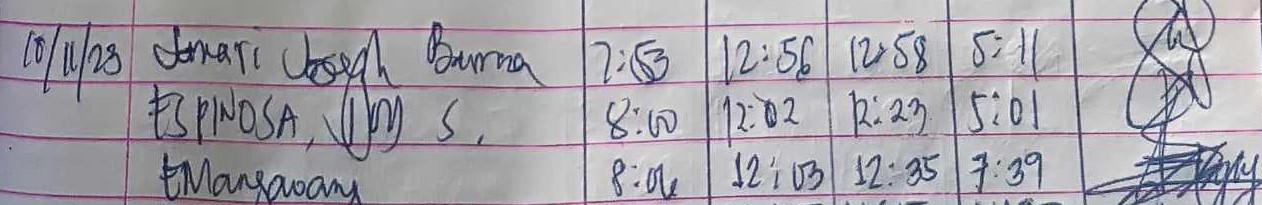 10/11/23 Jomari Joseph Burma 7:53 12:56 12:58 5:11
ESPINOSA, S. 8:00 12:02 12:23 5:01
8:06 12:03 12:35 7:39